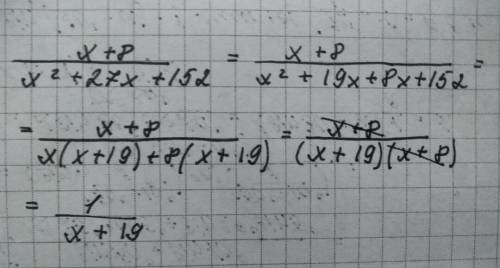 (x+8)/(x² + 27x + 152) = (x+8)/(x² + 19x + 8x + 152) =
= (x+8)/(x(x+19) + 8(x+19)) = (x+8)/((x+19)(x+8))
= 1/(x+19)